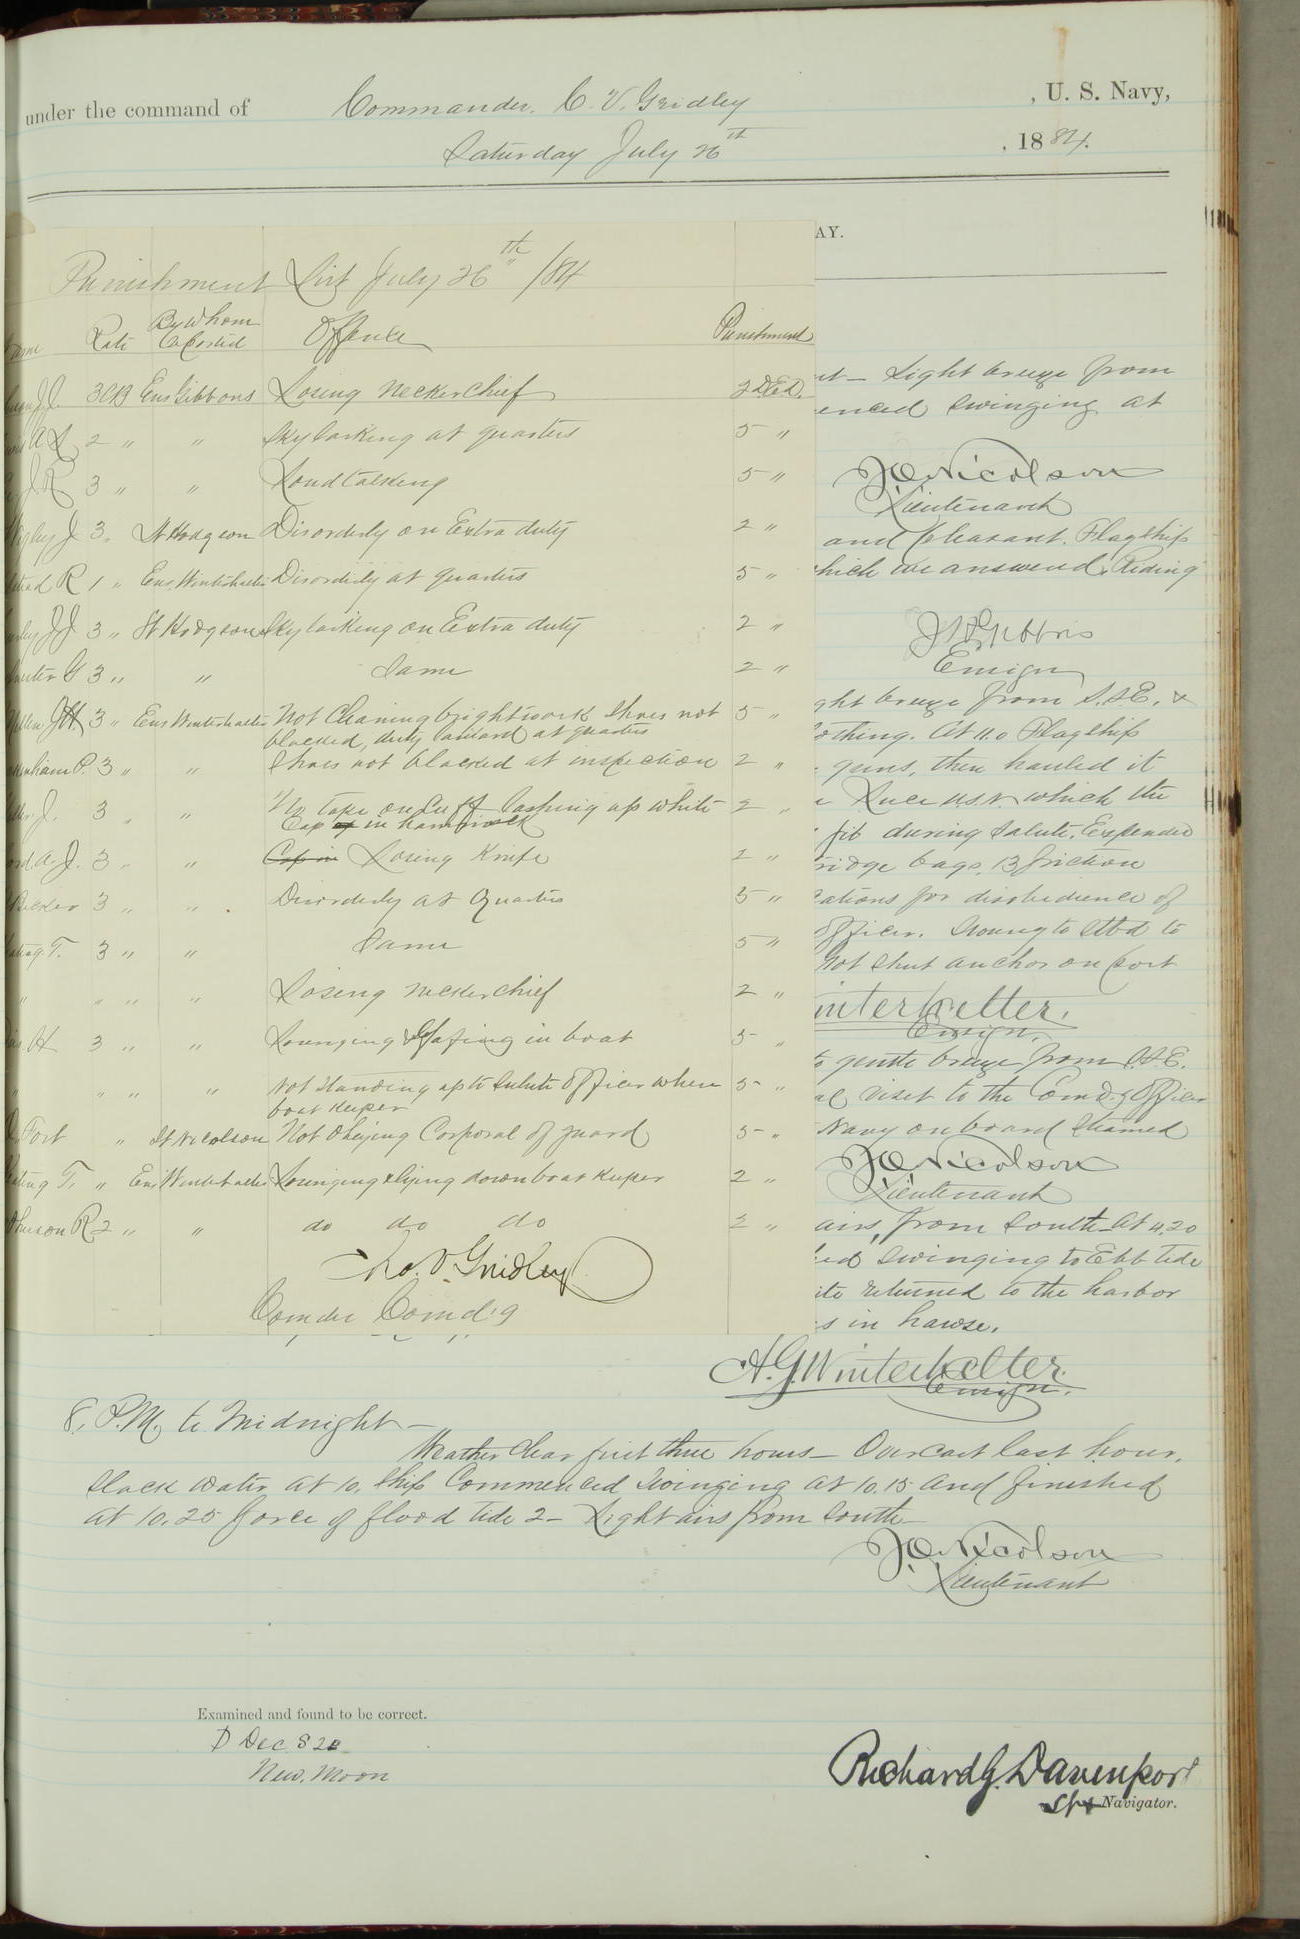 under the command of Commander. C. V. Gridley , U. S. Navy,
Saturday July 26th , 1884.
AY.
Punishment List July 26th /84
Name Rate By Whom Reported Offence Punishment
J.J. 3CB Ens Gibbons Losing neckerchief 2 d E.d.
A L 2 " " Skylarking at quarters 5 "
J. R 3 " " Loud talking 5 "
J 3 " Lt Hodgson Disorderly on Extra duty 2 "
R 1 " Ens. Winterhalter Disorderly at quarters 5 "
J J 3 " Lt Hodgson Skylarking on Extra duty 2 "
G 3 " " Same 2 "
J H 3 " Ens Winterhalter Not Cleaning brightwork Shoes not 5 "
blacked, duty at quarters
P. 3 " " Shoes not blacked at inspection 2 "
J. 3 " " lashing up white 2 "
Cap in hammock
A. J. 3 " " Cap in Losing Knife 2 "
Becker 3 " " Disorderly at Quarters 5 "
T. 3 " " Same 5 "
" " " " Losing neckerchief 2 "
H 3 " " Lounging & in boat 5 "
" " " " Not Standing up to Salute Officer when 5 "
boat keeper
Fort " Lt Nicolson Not Obeying Corporal of guard 5 "
T. " Ens Winterhalter Lounging & lying down boat keeper 2 "
R 2 " " do do do 2 "
Chas. V. Gridley
Comdr Comd'g
nt - Light breeze from
enced swinging at
J O Nicolson
Lieutenant
and pleasant. Flagship
hich we answered. Riding
J H Gibbons
Ensign
ght breeze from S.S.E. &
othing. At 11.0 Flagship
guns, then hauled it
Luce U.S.N. which the
fib during Salute. Expended
ridge bags, 13 friction
cations for disobedience of
officer. Swung to Stbd to
not Shut anchor on port
interhalter.
Ensign.
to gentle breeze from S.S.E.
al visit to the Comd'g Officer
Navy on board Steamed
J O Nicolson
Lieutenant
airs, from South. At 4.20
ed Swinging to Ebb tide
ite returned to the harbor
s in hawse.
A. G. Winterhalter.
Ensign.
8. P.M. to Midnight -
Weather Clear first three hours - Overcast last hour.
Slack Water at 10, Ship Commenced Swinging at 10.15 and finished
at 10.25 force of flood tide 2 - Light airs from South -
J O Nicolson
Lieutenant
Examined and found to be correct.
D Dec S 2
New. Moon
Richard G. Davenport
Lt & Navigator.